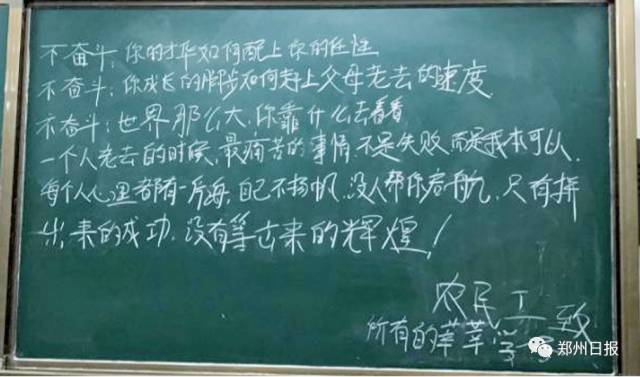 不奋斗，你的才华如何配上你的任性
不奋斗：你成长的脚步如何赶上父母老去的速度
不奋斗：世界那么大，你靠什么去看看
一个人老去的时候，最痛苦的事情，不是失败，而是我本可以，
每个人心里都有一片海，自己不扬帆，没人帮你启航，只有拼
出来的成功，没有等出来的辉煌！
农民工致
所有的莘莘学
郑州日报